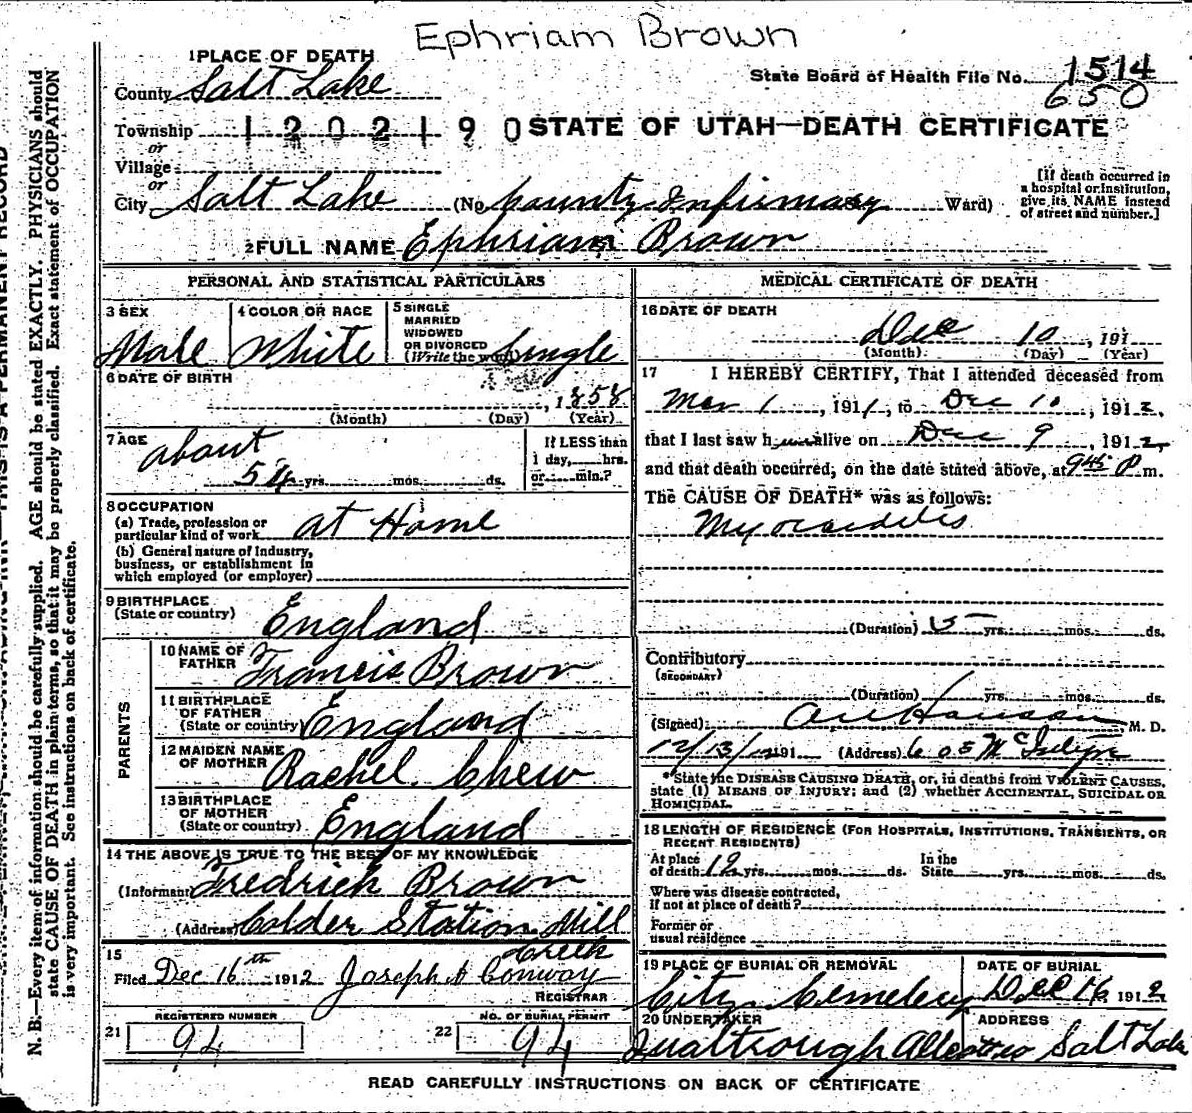 Ephriam Brown
1 PLACE OF DEATH
State Board of Health File No. 1514
County Salt Lake
650
Township 1202190 STATE OF UTAH—DEATH CERTIFICATE
or
Village
or
City Salt Lake (No. County Infirmary Ward)
[If death occurred in
a hospital or institution,
give its NAME instead
of street and number.]
2 FULL NAME Ephriam Brown
PERSONAL AND STATISTICAL PARTICULARS
3 SEX
Male
4 COLOR OR RACE
White
5 SINGLE
MARRIED
WIDOWED
OR DIVORCED
(Write the word) Single
6 DATE OF BIRTH
, 1858
(Month) (Day) (Year)
7 AGE
about
54 yrs. mos. ds.
If LESS than
1 day, hrs.
or min.?
8 OCCUPATION
(a) Trade, profession or
particular kind of work at Home
(b) General nature of Industry,
business, or establishment in
which employed (or employer)
9 BIRTHPLACE
(State or country) England
PARENTS
10 NAME OF
FATHER Francis Brown
11 BIRTHPLACE
OF FATHER
(State or country) England
12 MAIDEN NAME
OF MOTHER Rachel Chew
13 BIRTHPLACE
OF MOTHER
(State or country) England
14 THE ABOVE IS TRUE TO THE BEST OF MY KNOWLEDGE
(Informant) Fredrick Brown
(Address) Calder Station Mill
Creek
15
Filed Dec 16th 1912 Joseph H Conway
REGISTRAR
REGISTERED NUMBER
21 94
NO. OF BURIAL PERMIT
22 94
MEDICAL CERTIFICATE OF DEATH
16 DATE OF DEATH
Dec 10, 191
(Month) (Day) (Year)
17 I HEREBY CERTIFY, That I attended deceased from
Mar 1, 1911, to Dec 10, 1912,
that I last saw him alive on Dec 9, 1912,
and that death occurred, on the date stated above, at 945 P m.
The CAUSE OF DEATH* was as follows:
Myocarditis
(Duration) 5 yrs. mos. ds.
Contributory
(SECONDARY)
(Duration) yrs. mos. ds.
(Signed) M. D.
12/13/12 191 (Address) 605 McIntyre
*State the DISEASE CAUSING DEATH, or, in deaths from VIOLENT CAUSES,
state (1) MEANS OF INJURY; and (2) whether ACCIDENTAL, SUICIDAL OR
HOMICIDAL.
18 LENGTH OF RESIDENCE (FOR HOSPITALS, INSTITUTIONS, TRANSIENTS, OR
RECENT RESIDENTS)
At place
of death 12 yrs. mos. ds.
In the
State yrs. mos. ds.
Where was disease contracted,
if not at place of death?
Former or
usual residence
19 PLACE OF BURIAL OR REMOVAL
City Cemetery
DATE OF BURIAL
Dec 16 1912
20 UNDERTAKER
Qualtrough
ADDRESS
Salt Lake
READ CAREFULLY INSTRUCTIONS ON BACK OF CERTIFICATE
THIS IS A PERMANENT RECORD
N. B.—Every item of information should be carefully supplied. AGE should be stated EXACTLY. PHYSICIANS should
state CAUSE OF DEATH in plain terms, so that it may be properly classified. Exact statement of OCCUPATION
is very important. See instructions on back of certificate.